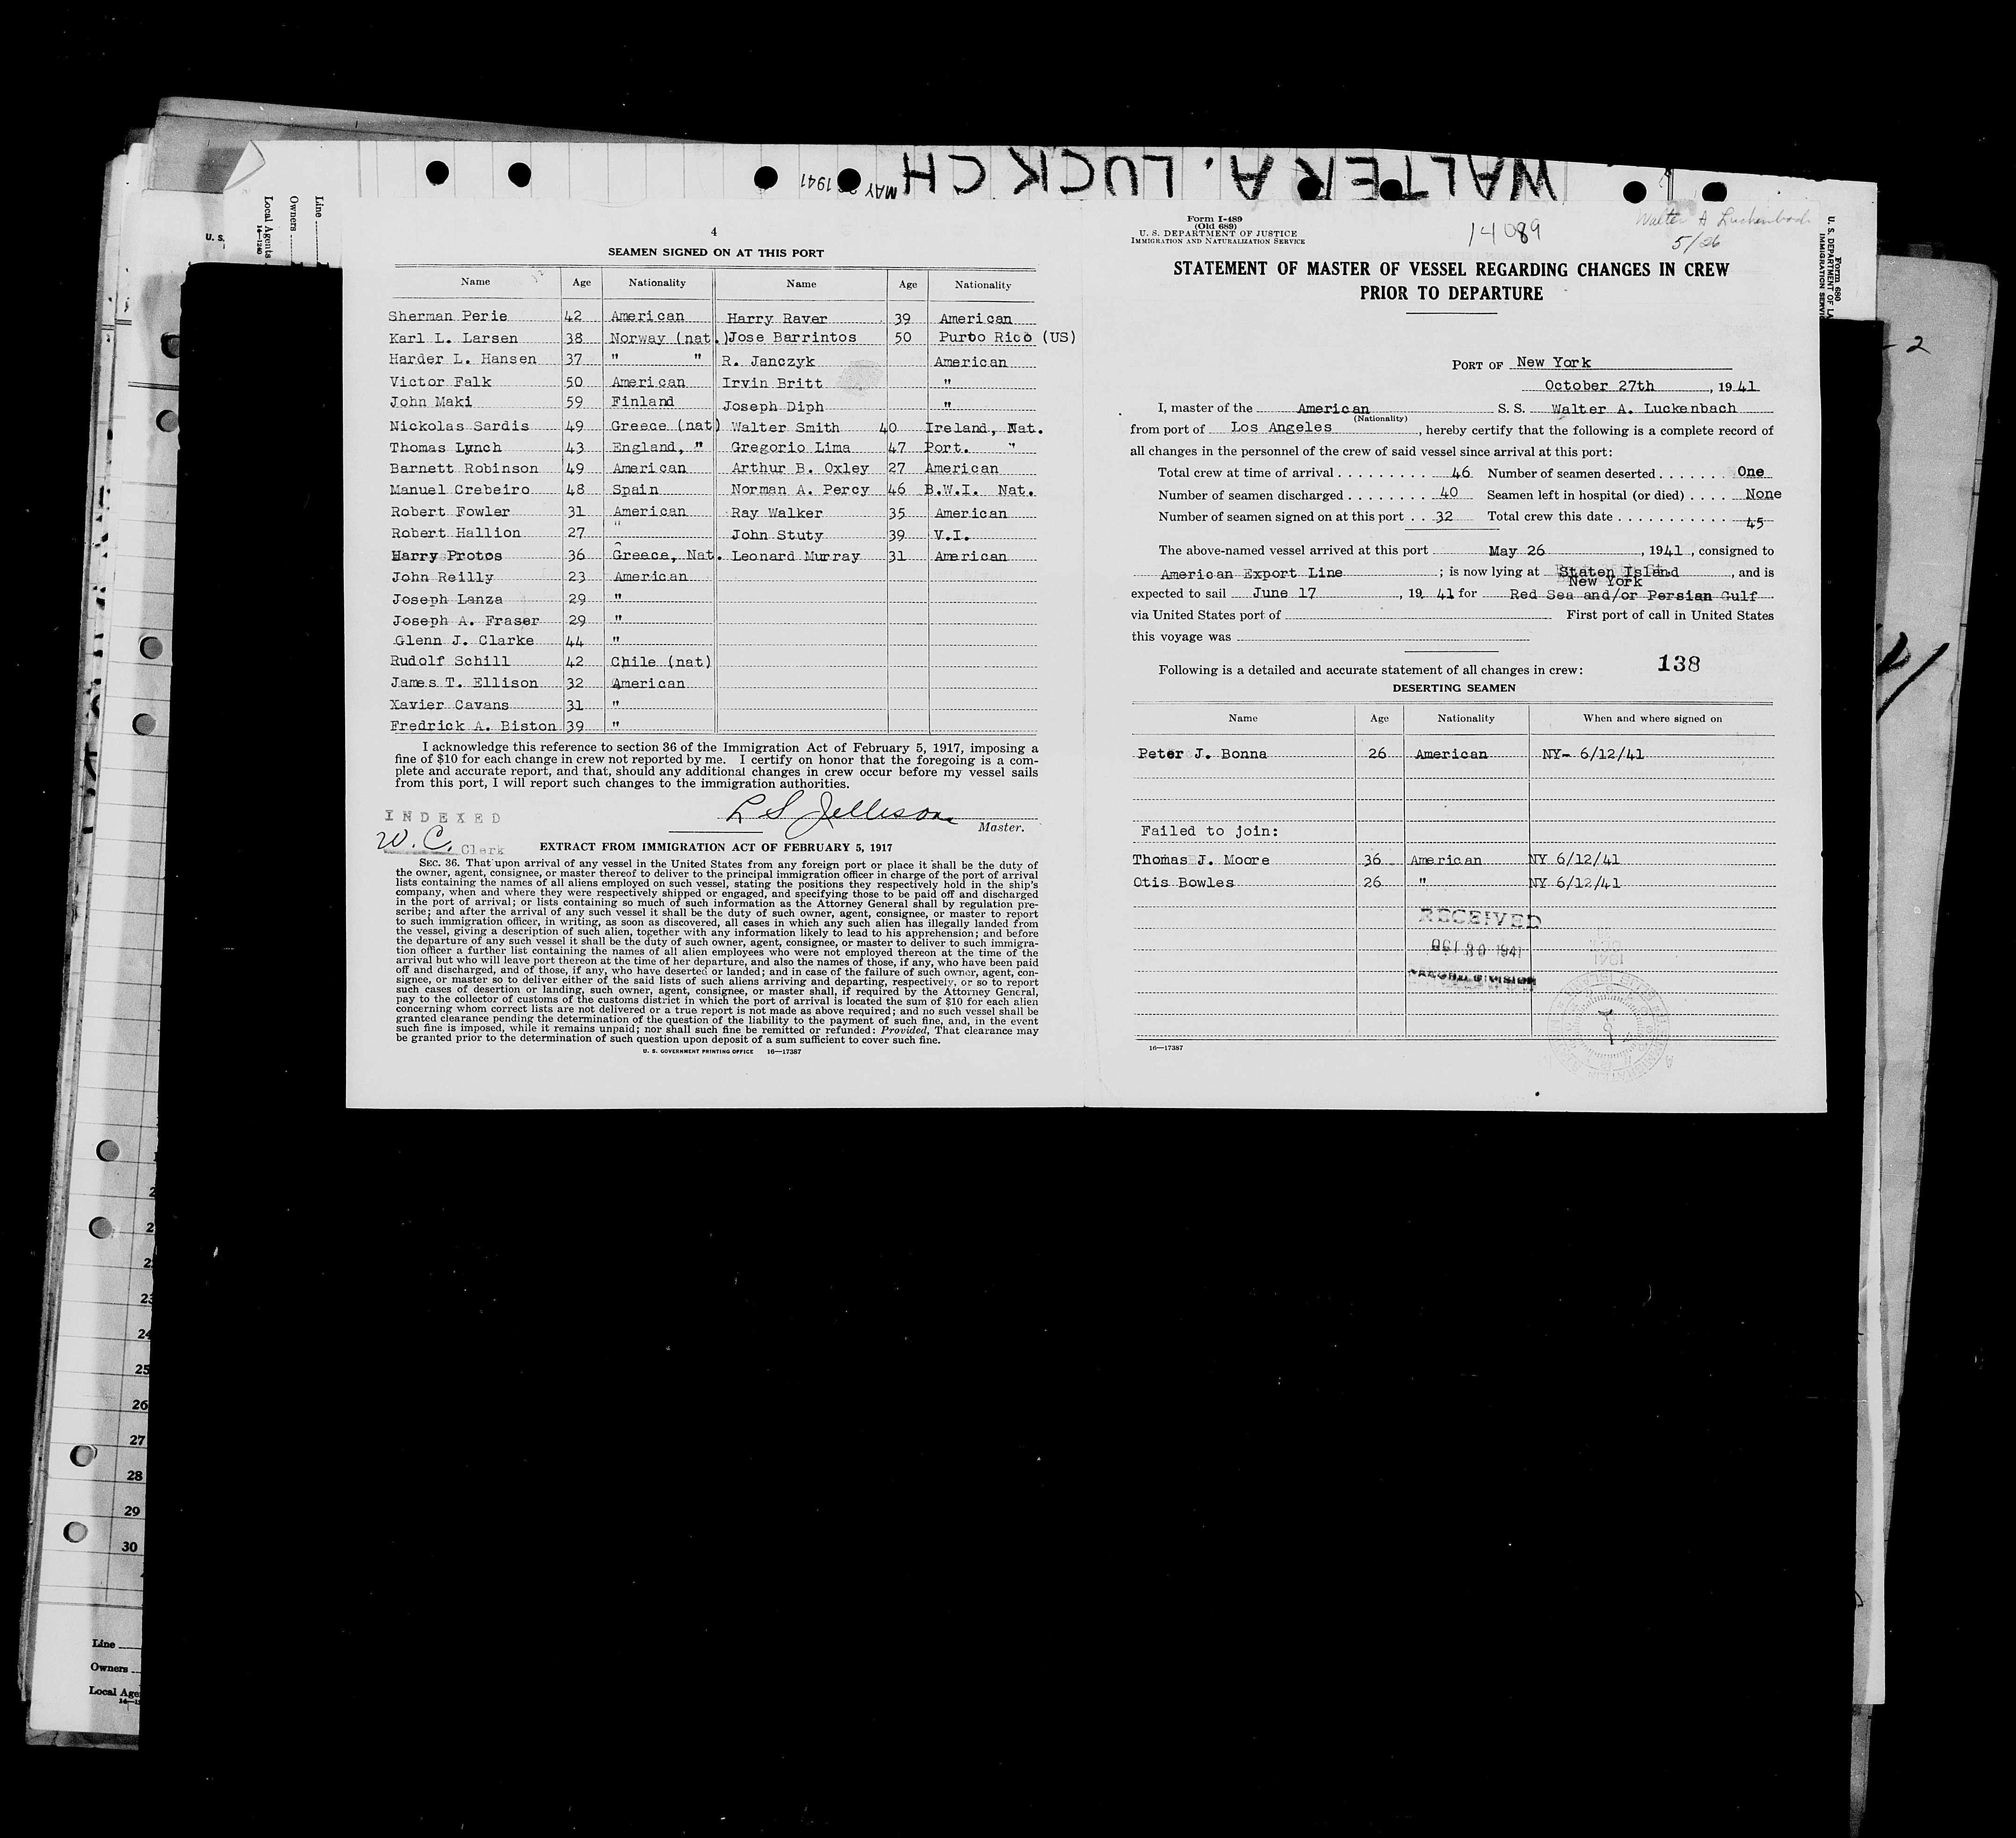 WALTER A. LUCK CH
MAY 1941
4
SEAMEN SIGNED ON AT THIS PORT
Name Age Nationality Name Age Nationality
Sherman Perie 42 American Harry Raver 39 American
Karl L. Larsen 38 Norway (nat.) Jose Barrintos 50 Purto Rico (US)
Harder L. Hansen 37 " " R. Janczyk American
Victor Falk 50 American Irvin Britt "
John Maki 59 Finland Joseph Diph "
Nickolas Sardis 49 Greece (nat) Walter Smith 40 Ireland, Nat.
Thomas Lynch 43 England, " Gregorio Lima 47 Port. "
Barnett Robinson 49 American Arthur B. Oxley 27 American
Manuel Crebeiro 48 Spain Norman A. Percy 46 B.W.I. Nat.
Robert Fowler 31 American Ray Walker 35 American
Robert Hallion 27 " John Stuty 39 V.I.
Harry Protos 36 Greece, Nat. Leonard Murray 31 American
John Reilly 23 American
Joseph Lanza 29 "
Joseph A. Fraser 29 "
Glenn J. Clarke 44 "
Rudolf Schill 42 Chile (nat)
James T. Ellison 32 American
Xavier Cavans 31 "
Fredrick A. Biston 39 "
I acknowledge this reference to section 36 of the Immigration Act of February 5, 1917, imposing a
fine of $10 for each change in crew not reported by me. I certify on honor that the foregoing is a com-
plete and accurate report, and that, should any additional changes in crew occur before my vessel sails
from this port, I will report such changes to the immigration authorities.
L S Jellison
Master.
INDEXED
W. C. Clerk
EXTRACT FROM IMMIGRATION ACT OF FEBRUARY 5, 1917
SEC. 36. That upon arrival of any vessel in the United States from any foreign port or place it shall be the duty of
the owner, agent, consignee, or master thereof to deliver to the principal immigration officer in charge of the port of arrival
lists containing the names of all aliens employed on such vessel, stating the positions they respectively hold in the ship's
company, when and where they were respectively shipped or engaged, and specifying those to be paid off and discharged
in the port of arrival; or lists containing so much of such information as the Attorney General shall by regulation pre-
scribe; and after the arrival of any such vessel it shall be the duty of such owner, agent, consignee, or master to report
to such immigration officer, in writing, as soon as discovered, all cases in which any such alien has illegally landed from
the vessel, giving a description of such alien, together with any information likely to lead to his apprehension; and before
the departure of any such vessel it shall be the duty of such owner, agent, consignee, or master to deliver to such immigra-
tion officer a further list containing the names of all alien employees who were not employed thereon at the time of the
arrival but who will leave port thereon at the time of her departure, and also the names of those, if any, who have been paid
off and discharged, and of those, if any, who have deserted or landed; and in case of the failure of such owner, agent, con-
signee, or master so to deliver either of the said lists of such aliens arriving and departing, respectively, or so to report
such cases of desertion or landing, such owner, agent, consignee, or master shall, if required by the Attorney General,
pay to the collector of customs of the customs district in which the port of arrival is located the sum of $10 for each alien
concerning whom correct lists are not delivered or a true report is not made as above required; and no such vessel shall be
granted clearance pending the determination of the question of the liability to the payment of such fine, and, in the event
such fine is imposed, while it remains unpaid; nor shall such fine be remitted or refunded: Provided, That clearance may
be granted prior to the determination of such question upon deposit of a sum sufficient to cover such fine.
U. S. GOVERNMENT PRINTING OFFICE 16—17387
Form I-489
(Old 689)
U. S. DEPARTMENT OF JUSTICE
IMMIGRATION AND NATURALIZATION SERVICE
14089
Walter A Luckenbach
5/26
STATEMENT OF MASTER OF VESSEL REGARDING CHANGES IN CREW
PRIOR TO DEPARTURE
PORT OF New York
October 27th, 1941
I, master of the American S. S. Walter A. Luckenbach
(Nationality)
from port of Los Angeles, hereby certify that the following is a complete record of
all changes in the personnel of the crew of said vessel since arrival at this port:
Total crew at time of arrival . . . . . . . . . 46 Number of seamen deserted . . . . . . . One
Number of seamen discharged . . . . . . . . 40 Seamen left in hospital (or died) . . . . None
Number of seamen signed on at this port . . 32 Total crew this date . . . . . . . . . . . . 45
The above-named vessel arrived at this port May 26, 1941, consigned to
American Export Line ; is now lying at Staten Island, and is
New York
expected to sail June 17, 1941 for Red Sea and/or Persian Gulf
via United States port of First port of call in United States
this voyage was
Following is a detailed and accurate statement of all changes in crew: 138
DESERTING SEAMEN
Name Age Nationality When and where signed on
Peter J. Bonna 26 American NY- 6/12/41
Failed to join:
Thomas J. Moore 36 American NY 6/12/41
Otis Bowles 26 " NY 6/12/41
RECEIVED
OCT 30 1941
RECORD DIVISION
16—17387
Line
Owners
Local Agents
16—1240
U. S.
Form 680
U. S. DEPARTMENT OF LA
IMMIGRATION SERVI
2
23
24
25
26
27
28
29
30
Line
Owners
Local Age